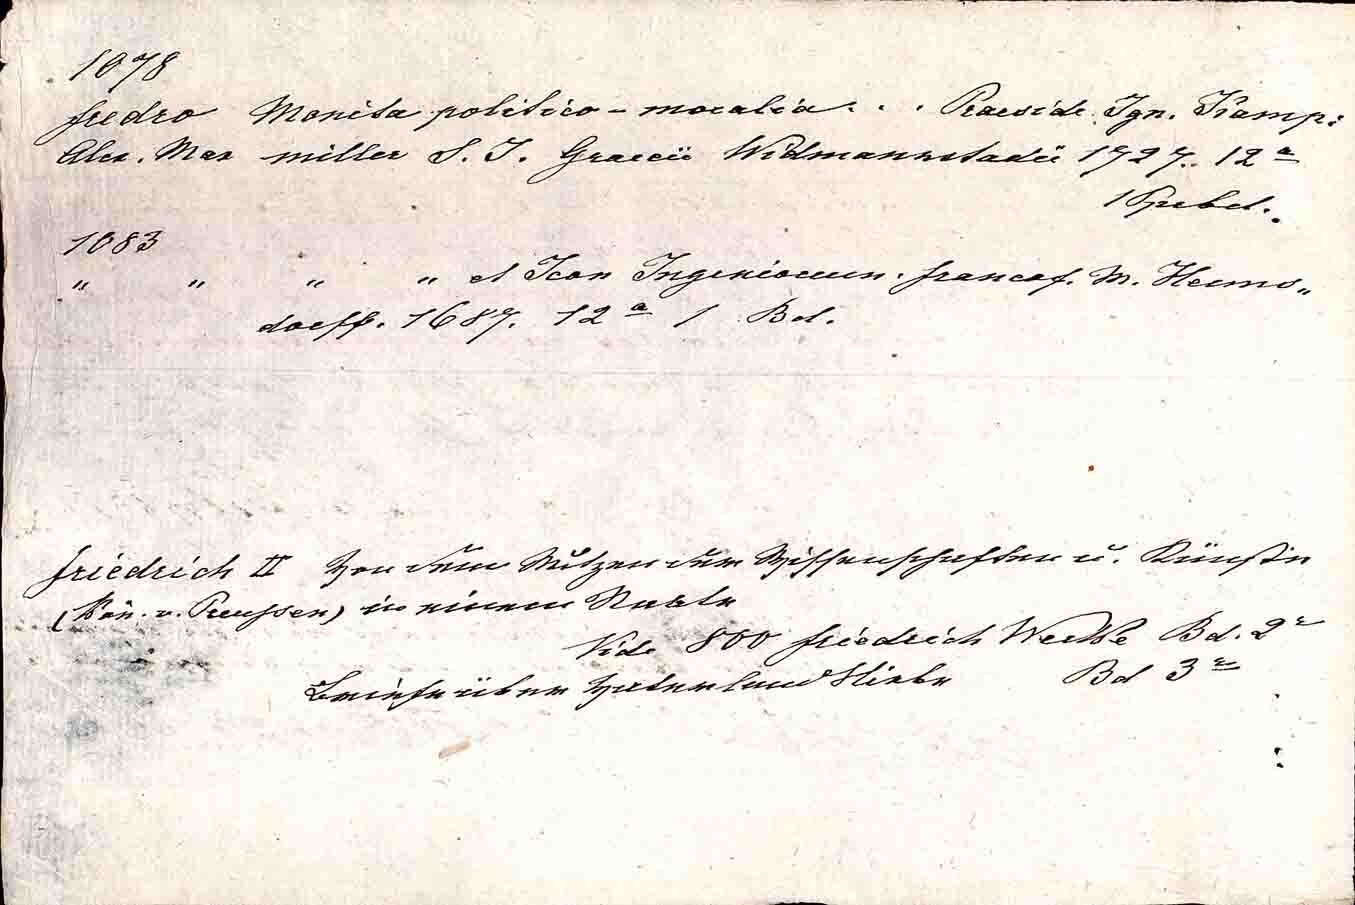 1078
Fredro Monita politico-moralia . . . Praeside Ign. Kamp:
Alex. Max miller S. J. Graecii Widmannstadii 1727. 12a
1 Prbd.
1083
" " " " et Icon Ingeniorum. Francof. M. Herms„
dorff. 1687. 12a 1 Bd.
Friedrich II Von dem Nutzen der Wissenschaften u. Künste
(Kön. v. Preussen) in einem Staate
Vide 800 Friedrich Werke Bd. 2r
Briefe über Vaterlandsliebe Bd 3r